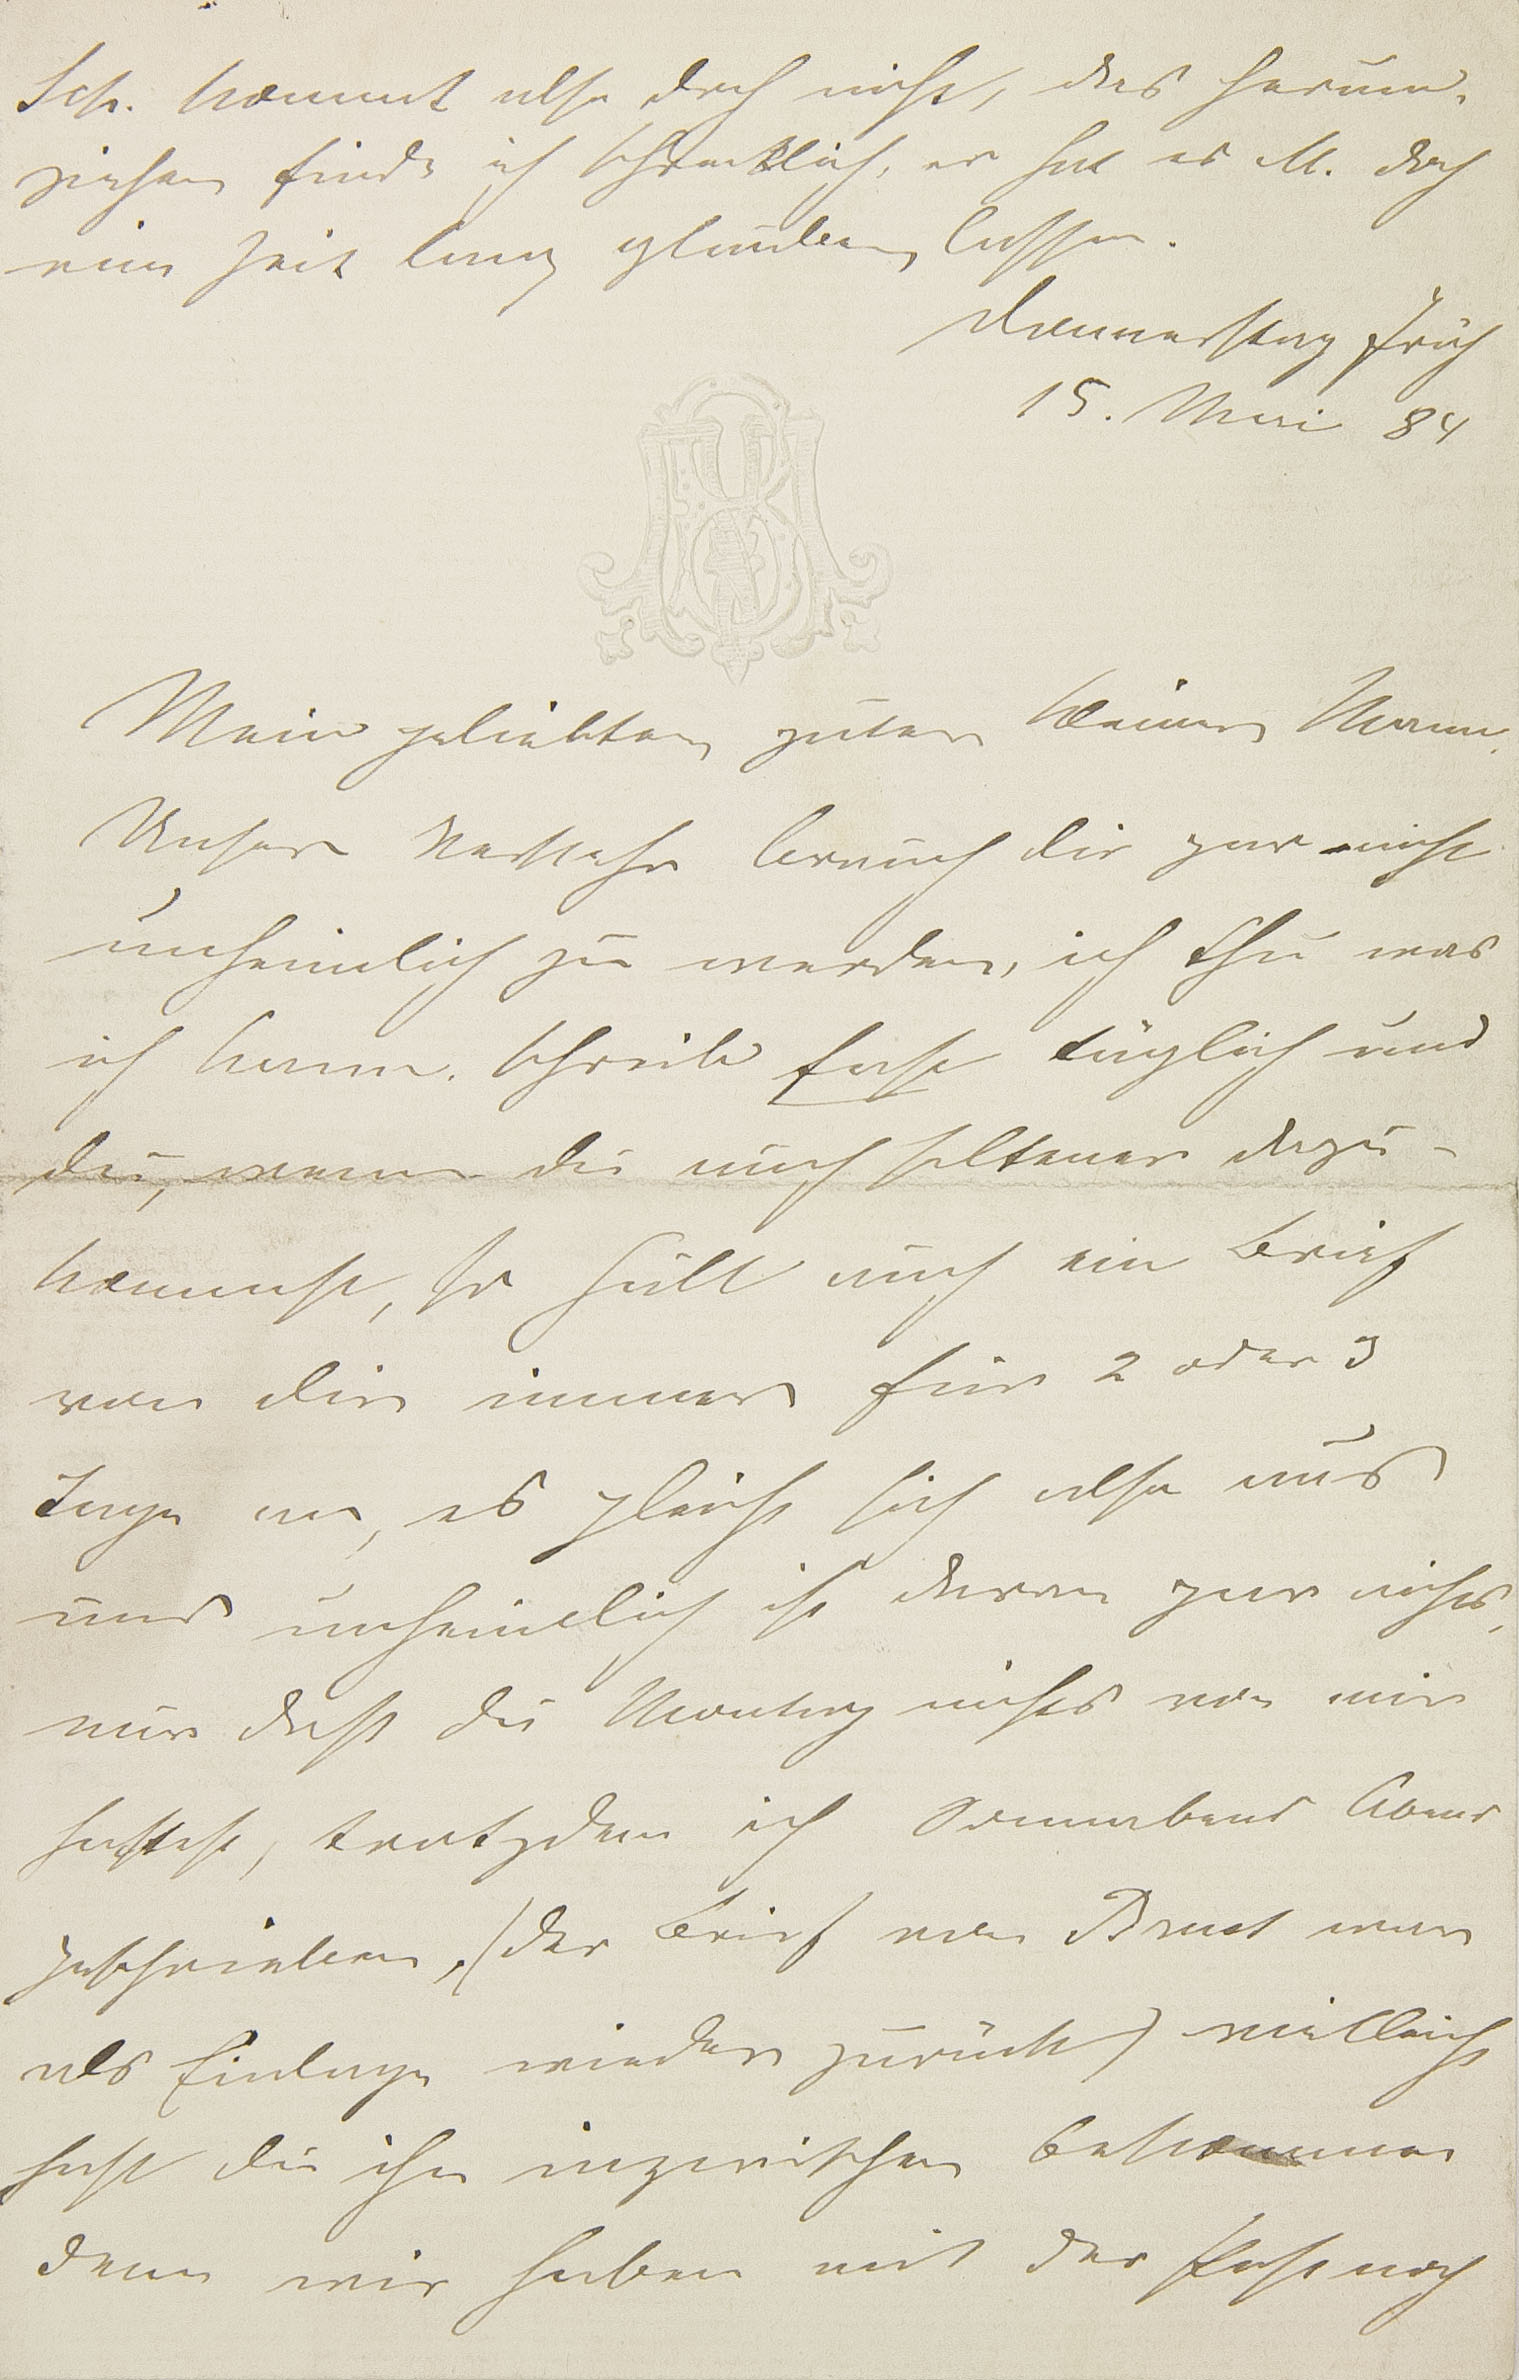 Sch. kommt also doch nicht, das herum-
ziehen finde ich schrecklich, er hat es M. doch
eine Zeit lang glauben lassen.
Donnerstag früh
15. Mai 84
Mein geliebter guter kleiner Mann,
Unser Verkehr brauch dir gar nicht
unheimlich zu werden, ich thu was
ich kann. schreibe fast täglich und
du, wenn du auch seltener dazu-
kommst, so hält auch ein Brief
von dir immer für 2 oder 3
Tage an, es gleicht sich also aus
und unheimlich ist daran gar nichts,
nur dass du Montag nichts von mir
hattest, trotzdem ich Sonnabend Abend
geschrieben, (der Brief von Brust war
als Einlage wieder zurück) vielleicht
hast du ihn inzwischen bekommen
denn wir haben mit der Post noch